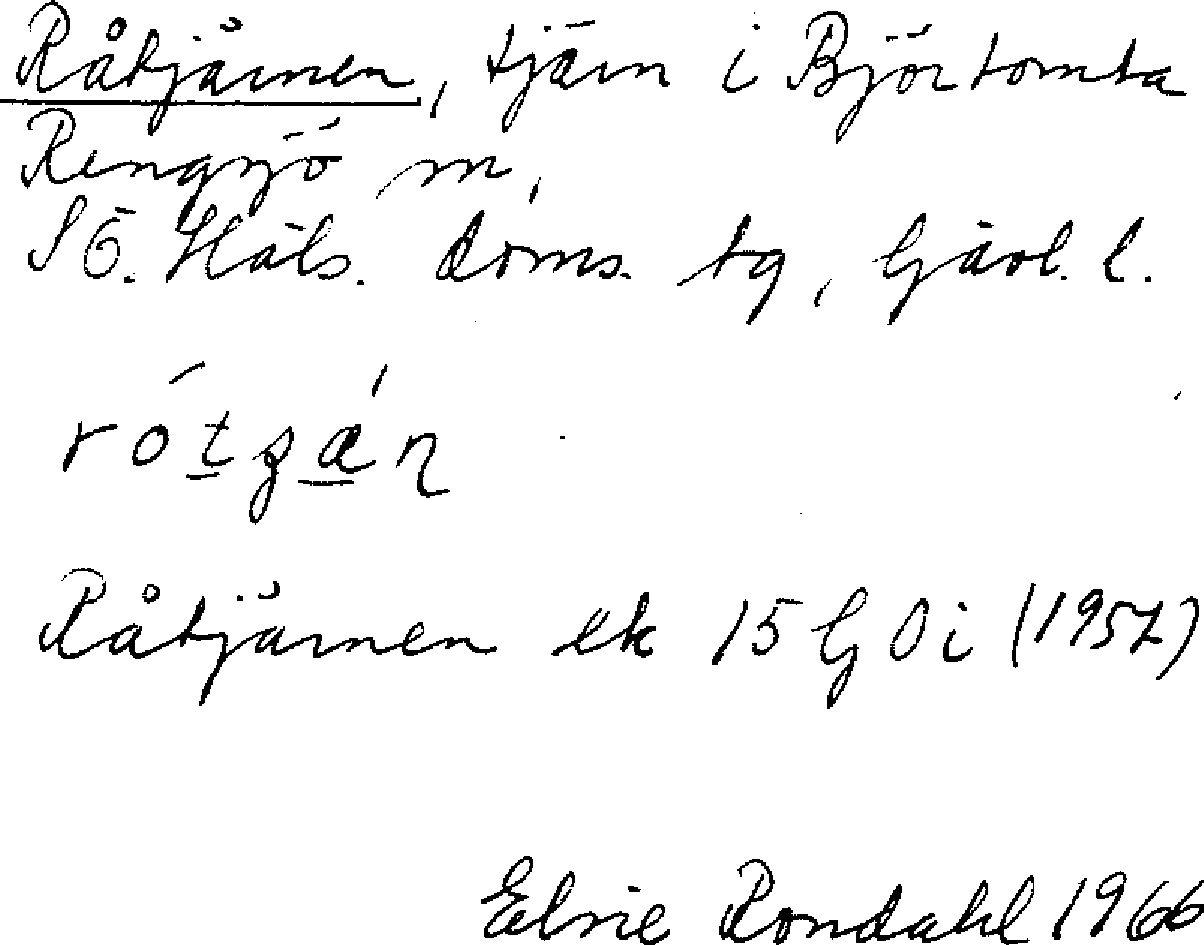 Råtjärnen, tjärn i Björtomta
Rengsjö sn,
SÖ. Häls. doms. tg, Gävl. l.
rótʒæ̀n
Råtjärnen ek 15 G 0 i (1957)
Elsie Rondahl 1966